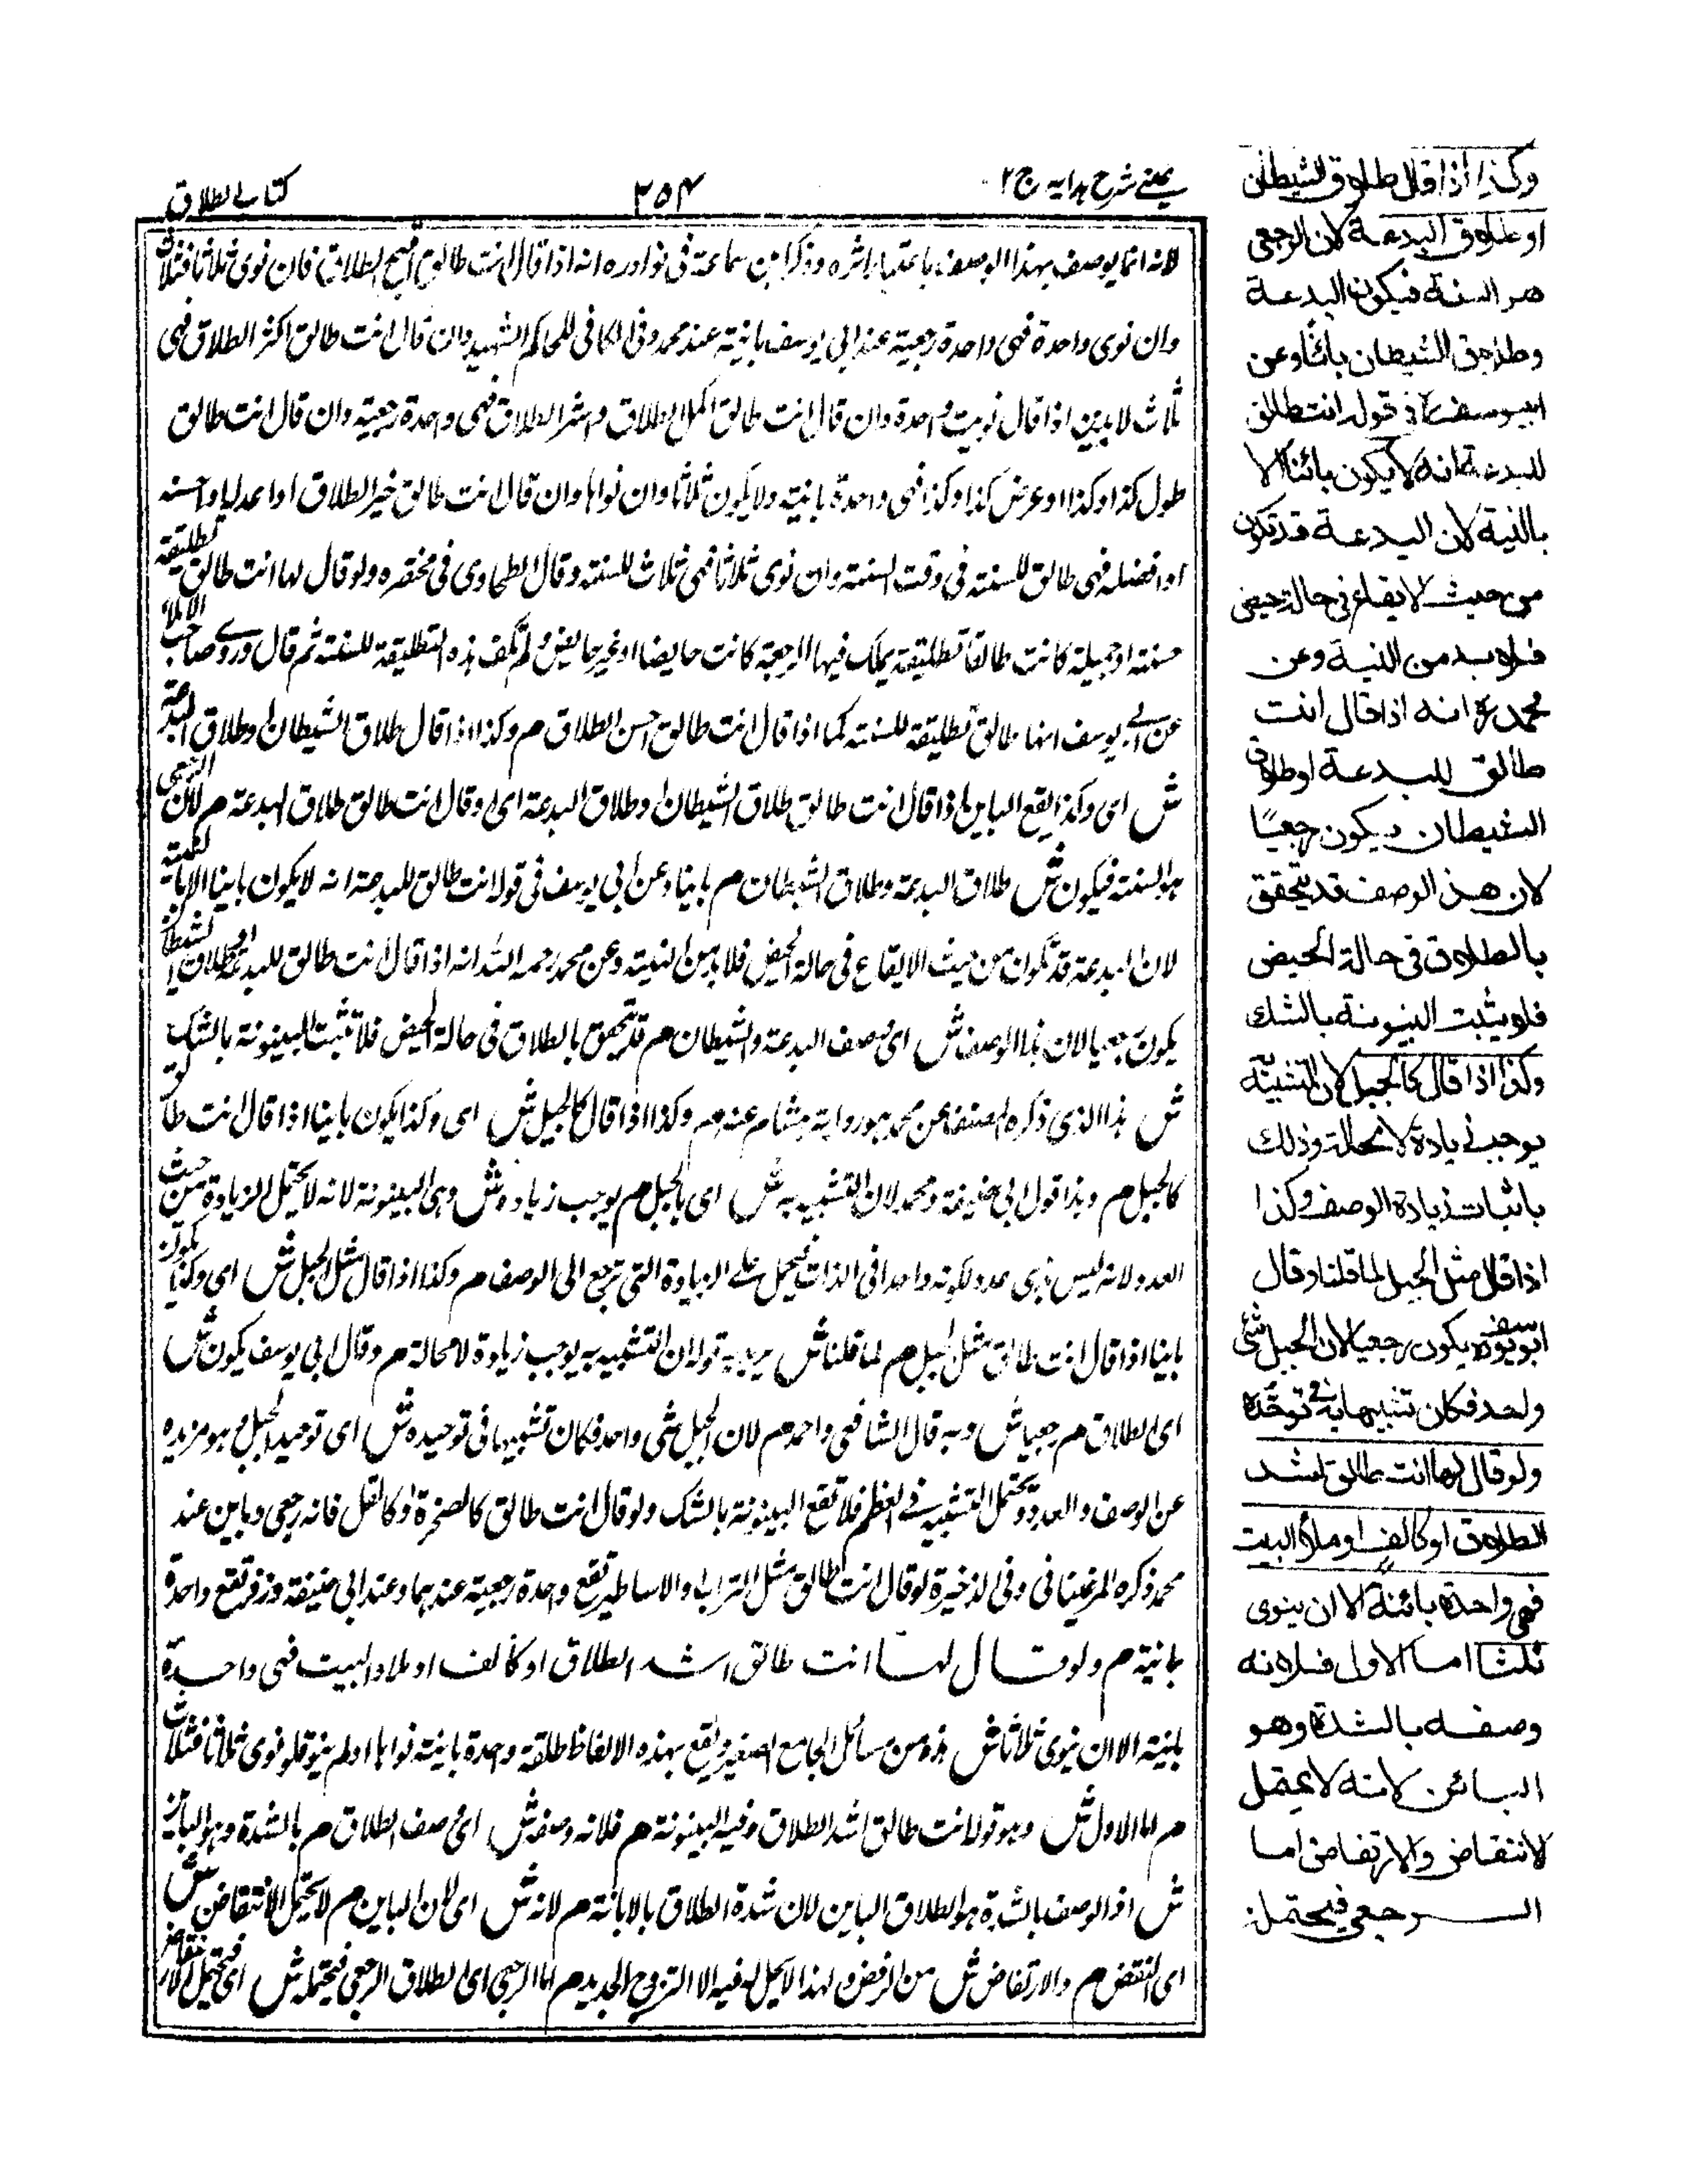 عینی شرح ہدایہ ج ۲
۳۵۴
کتاب الطلاق
لانه انما يوصف بهذا الوصف باعتبار اثره وذكر ابن سماعة فى نوادره انه اذا قال انت طالق اقبح الطلاق فان نوى ثلاثا فثلاث
وان نوى واحدة فهى واحدة رجعية عند ابى يوسف بائنة عند محمد وفى الكافى للحاكم الشهيد وان قال انت طالق اكثر الطلاق فهى
ثلاث لا يدين اذا قال نويت واحدة وان قال انت طالق اكمل الطلاق و الطلاق فهى واحدة رجعية وان قال انت طالق
طول كذا وكذا او عرض كذا وكذا فهى واحدة بائنة ولا يكون ثلاثا وان نواها وان قال انت طالق خير الطلاق او اعدله او احسنه
او افضله فهى طالق للسنة فى وقت السنة وان نوى ثلاثا فهى ثلاث للسنة وقال الطحاوى فى مختصره ولو قال لها انت طالق تطليقة
حسنة او جميلة كانت طالقا تطليقة يملك فيها الرجعة كانت حايضا او غير حايض ولم تكن هذه التطليقة للسنة ثم قال وروى صاحب الاملاء
عن ابى يوسف انها طالق تطليقة للسنة كما اذا قال انت طالق احسن الطلاق م وكذا اذا قال طلاق الشيطان او طلاق البدعة
ش اى وكذا يقع الباين اذا قال انت طالق طلاق الشيطان او طلاق البدعة اى او قال انت طالق طلاق البدعة م لان الرجعى
هو السنة فيكون ش طلاق البدعة وطلاق الشيطان م باينا وعن ابى يوسف فى قوله انت طالق للبدعة انه لا يكون باينا الا بالنية
لان البدعة قد تكون من حيث الايقاع فى حالة الحيض فلا بد من النية وعن محمد رحمه الله انه اذا قال انت طالق للبدعة او طلاق الشيطان
يكون رجعيا لان هذا الوصف ش اى وصف البدعة والشيطان م قد يتحقق بالطلاق فى حالة الحيض فلا تثبت البينونة بالشك
ش هذا الذى ذكره المصنف عن محمد هو رواية هشام عنه م وكذا اذا قال كالجبل ش اى وكذا يكون باينا اذا قال انت طالق
كالجبل م وهذا قول ابى حنيفة ومحمد لان التشبيه به ش اى بالجبل م يوجب زيادة ش وهى البينونة لانه لا يحتمل الزيادة من حيث
العدد لانه ليس بذى عدد لكونه واحدا فى الذات فيحمل على الزيادة التى ترجع الى الوصف م وكذا اذا قال مثل الجبل ش اى وكذا يكون
باينا اذا قال انت طالق مثل الجبل م لما قلنا ش يريد به قوله ان التشبيه به يوجب زيادة لا محالة م وقال ابى يوسف يكون ش
اى الطلاق م رجعيا ش وبه قال الشافعى واحمد م لان الجبل شى واحد فكان تشبيها فى توحيده ش اى توحيد الجبل هو مزيده
عن الوصف والعدد ويحتمل التشبيه فى العظم فلا تقع البينونة بالشك ولو قال انت طالق كالصخرة او كالفل فانه رجعى وباين عند
محمد ذكره المرغينانى وفى الذخيرة لو قال انت طالق مثل التراب والاساطير تقع واحدة رجعية عندهما وعند ابى حنيفة وزفر تقع واحدة
بائنة م ولو قال لها انت طالق اشد الطلاق او كالف او ملاء البيت فهى واحدة
بائنة الا ان ينوى ثلاثا ش هذه من مسائل الجامع الصغير ويقع بهذه الالفاظ طلقة واحدة بائنة نواها او لم ينو فلو نوى ثلاثا فثلاث
م اما الاول ش وهو قوله انت طالق اشد الطلاق وفيه البينونة م فلانه وصفه ش اى وصف الطلاق م بالشدة وهو الباين
ش اذ الوصف بالشدة هو الطلاق الباين لان شدة الطلاق بالابانة م لانه ش اى لان الباين م لا يحتمل الانتقاض ش
اى النقض م والارتفاض ش من الرفض و لهذا لا يحل له فيه الا التزوج الجديد م اما الرجعى اى الطلاق الرجعى فيحتمله ش اى فيحتمل الانتقاض
وكذا اذا قال طلاق الشيطان
او طلاق البدعة لان الرجعى
هو السنة فيكون البدعة
وطلاق الشيطان بائنا وعن
ابي يوسف رح فى قوله انت طالق
للبدعة انه لا يكون بائنا الا
بالنية لان البدعة قد تكون
من حيث الايقاع فى حالة حيض
فلا بد من النية وعن
محمد رح انه اذا قال انت
طالق للبدعة او طلاق
الشيطان يكون رجعيا
لان هذا الوصف قد يتحقق
بالطلاق فى حالة الحيض
فلا يثبت البينونة بالشك
وكذا اذا قال كالجبل لان التشبيه
يوجب زيادة لا محالة وذلك
باثبات زيادة الوصف وكذا
اذا قال مثل الجبل لما قلنا وقال
ابو يوسف رح يكون رجعيا لان الجبل شئ
واحد فكان تشبيها به فى توحده
ولو قال لها انت طالق اشد
الطلاق او كالف او ملأ البيت
فهى واحدة بائنة الا ان ينوى
ثلثا اما الاول فلانه
وصفه بالشدة وهو
البائن لانه لا يحتمل
الانتقاض والارتفاض اما
الرجعي فيحتمله